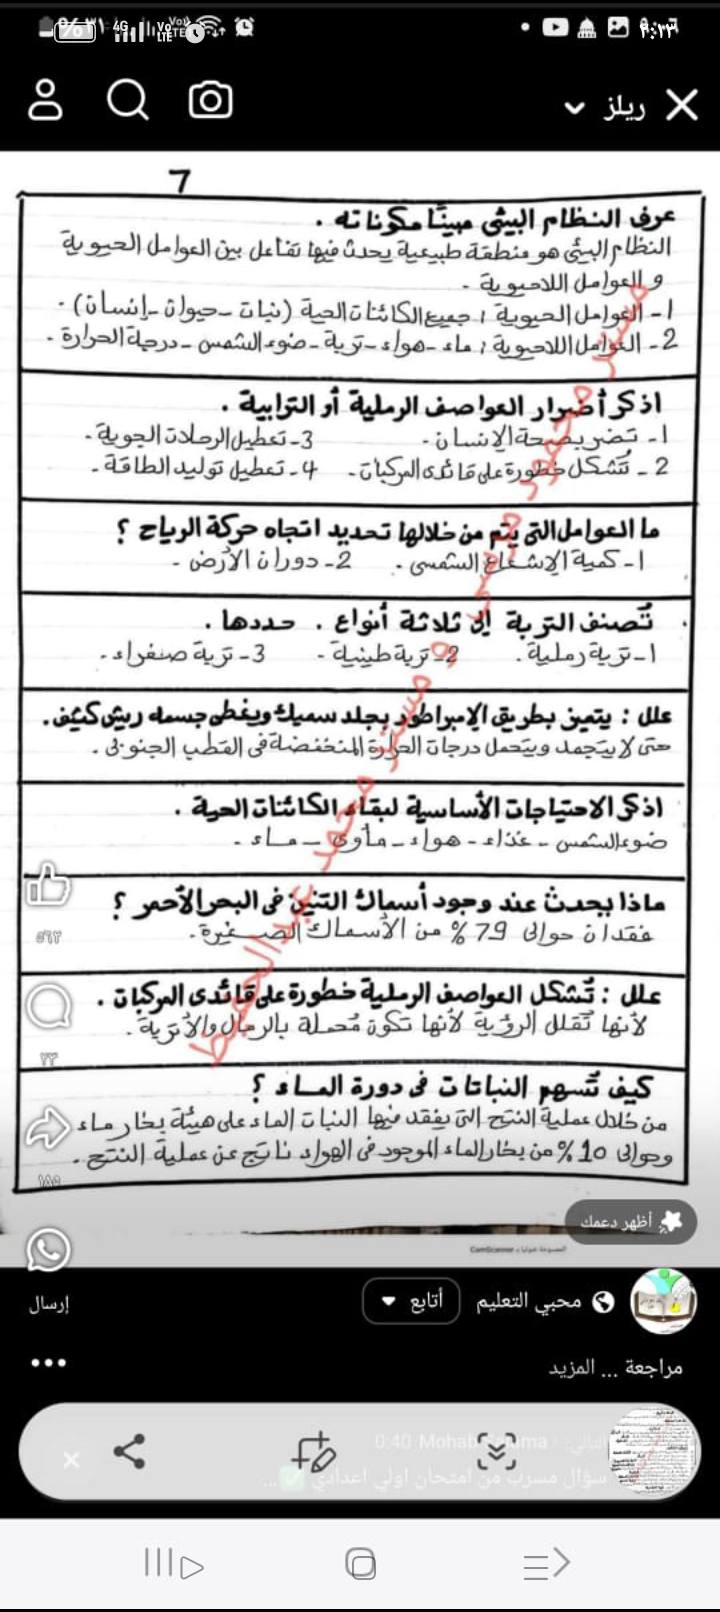 ٩:٢٣
٪٣١
4G
ريلز
7
عرف النظام البيئى مبينًا مكوناته .
النظام البيئى هو منطقة طبيعية يحدث فيها تفاعل بين العوامل الحيوية
و العوامل اللاحيوية .
1- العوامل الحيوية : جميع الكائنات الحية (نبات - حيوان - إنسان) .
2- العوامل اللاحيوية : ماء - هواء - تربة - ضوء الشمس - درجة الحرارة .
اذكر أضرار العواصف الرملية أو الترابية .
1- تضر بصحة الإنسان . 3- تعطيل الرحلات الجوية .
2- تُشكل خطورة على قائدى المركبات . 4- تعطيل توليد الطاقة .
ما العوامل التى يتم من خلالها تحديد اتجاه حركة الرياح ؟
1- كمية الإشعاع الشمسى . 2- دوران الأرض .
تُصنف التربة إلى ثلاثة أنواع . حددها .
1- تربة رملية . 2- تربة طينية . 3- تربة صفراء .
علل : يتميز بطريق الإمبراطور بجلد سميك ويغطى جسمه ريش كثيف .
حتى لا يتجمد ويتحمل درجات الحرارة المنخفضة فى القطب الجنوبى .
اذكر الاحتياجات الأساسية لبقاء الكائنات الحية .
ضوء الشمس - غذاء - هواء - مأوى - ماء .
ماذا يحدث عند وجود أسماك التنين فى البحر الأحمر ؟
فقدان حوالى 79 % من الأسماك الصغيرة .
علل : تُشكل العواصف الرملية خطورة على قائدى المركبات .
لأنها تُقلل الرؤية لأنها تكون مُحملة بالرمال والأتربة .
كيف تُسهم النباتات فى دورة الماء ؟
من خلال عملية النتح التى يفقد فيها النبات الماء على هيئة بخار ماء
وحوالى 10 % من بخار الماء الموجود فى الهواء ناتج عن عملية النتح .
مستر محمود مرسى و مستر محمد عبدالحفيظ
٥٦٢
٢٢
١٨٥
أظهر دعمك
الممسوحة ضوئيا بـ CamScanner
محبي التعليم
أتابع
إرسال
مراجعة ... المزيد
0:40
سؤال مسرب من امتحان اولي اعدادي ✅...